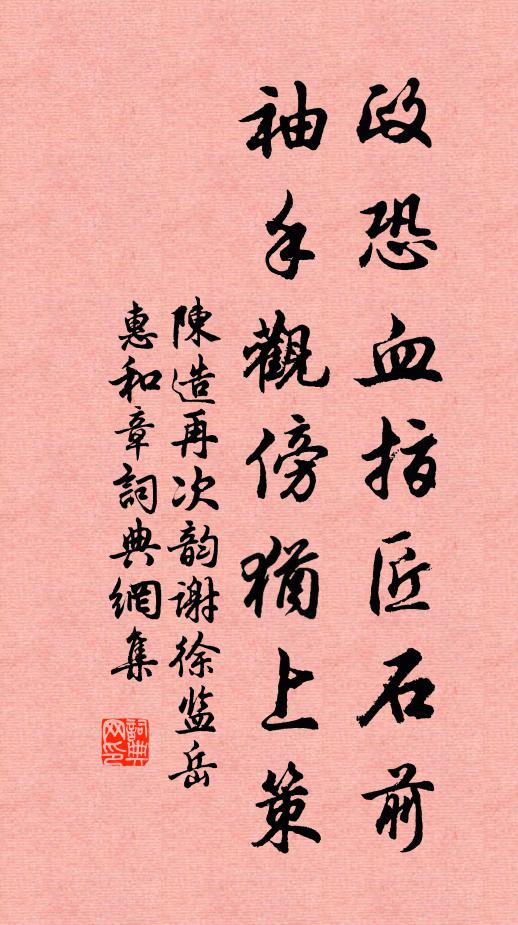 政恐血指匠石前
袖手觀傍猶上策
陳造再次韵谢徐监岳
惠和章詞典網集
詞典網印